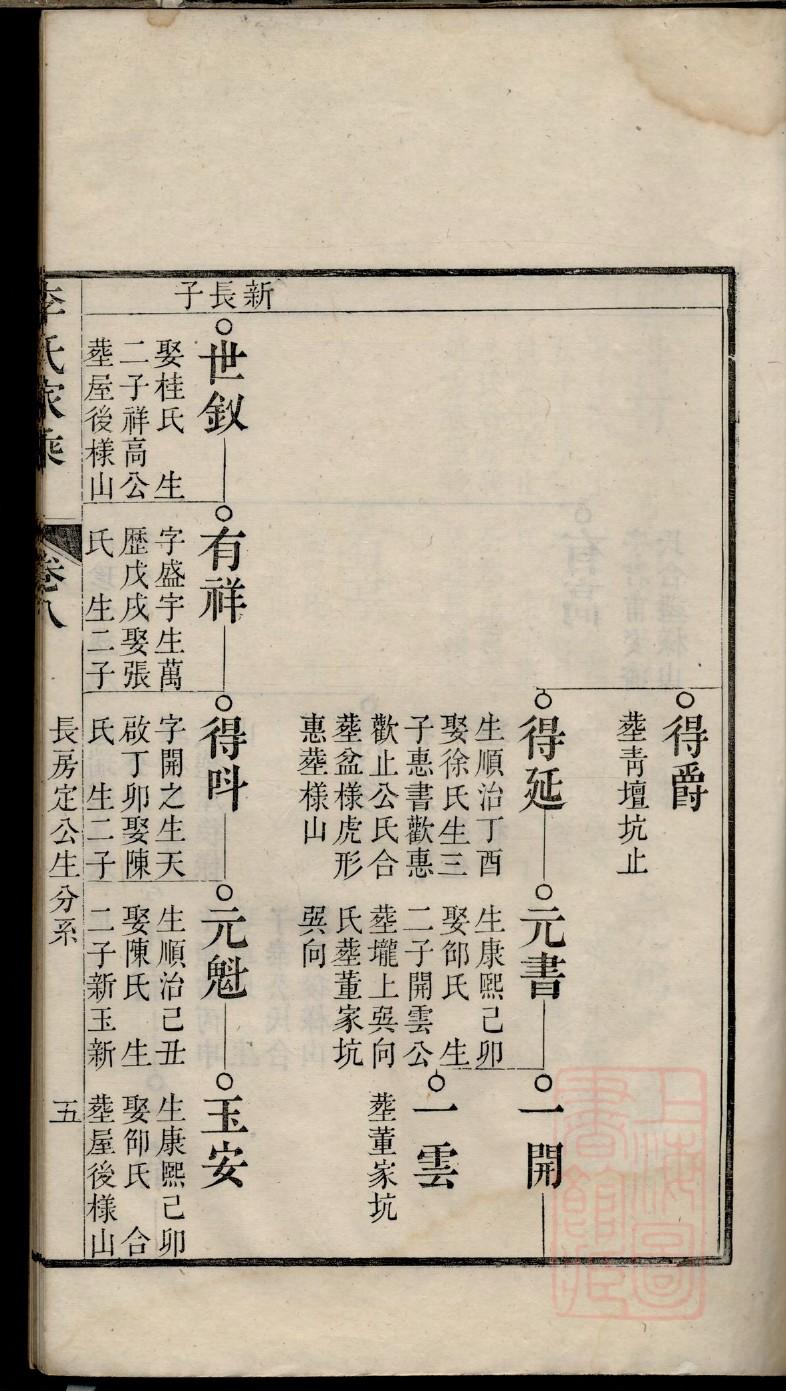 得爵
塟靑壇坑止
得延
生順治丁酉
娶徐氏生三
子惠書歡惠
歡止公氏合
塟盆樣虎形
惠塟樣山
元書
生康熙己卯
娶邵氏 生
二子開雲公
塟壠上巽向
氏塟董家坑
巽向
一開
一雲
塟董家坑
新長子
世釵
娶桂氏 生
二子祥高公
塟屋後樣山
有祥
字盛宇生萬
歷戊戌娶張
氏 生二子
得呌
字開之生天
啟丁卯娶陳
氏 生二子
元魁
生順治己丑
娶陳氏 生
二子新玉新
玉安
生康熙己卯
娶邵氏 合
塟屋後樣山
李氏家乘
卷八
長房定公生分系
五
上海圖書館藏